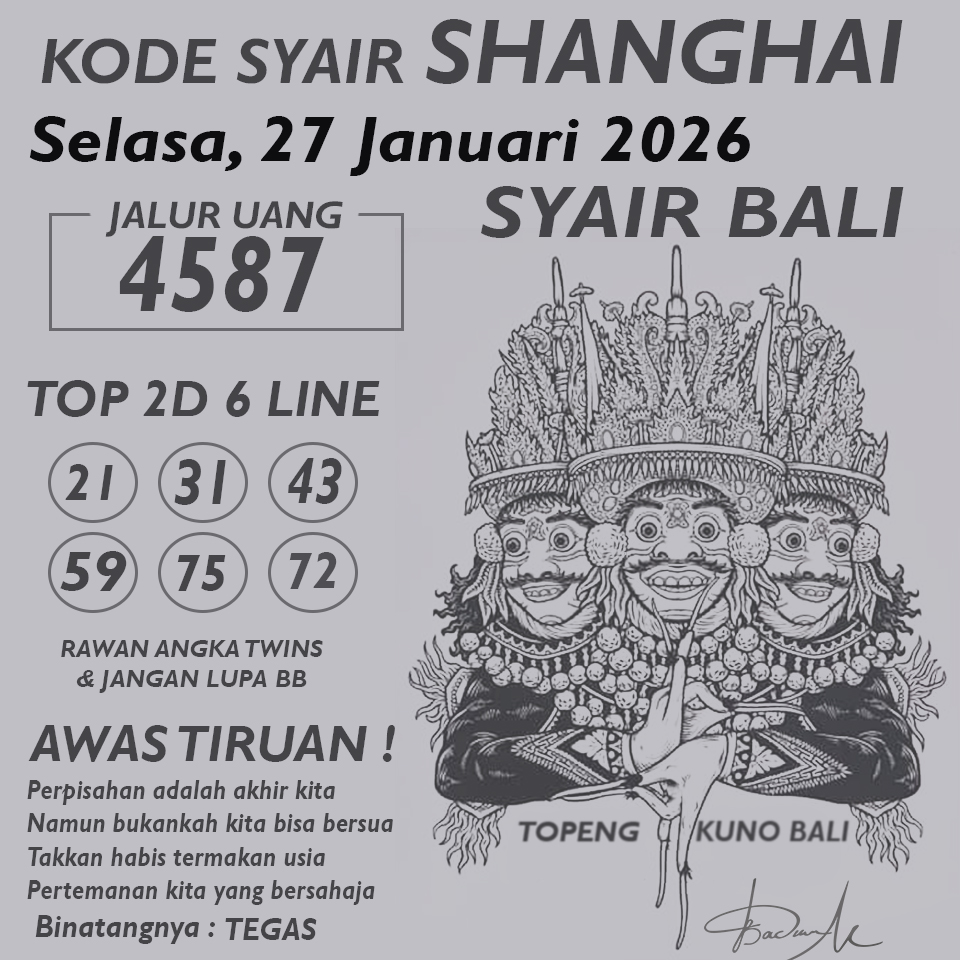 KODE SYAIR SHANGHAI
Selasa, 27 Januari 2026
SYAIR BALI
JALUR UANG
4587
TOP 2D 6 LINE
21 31 43
59 75 72
RAWAN ANGKA TWINS
& JANGAN LUPA BB
AWAS TIRUAN !
Perpisahan adalah akhir kita
Namun bukankah kita bisa bersua
Takkan habis termakan usia
Pertemanan kita yang bersahaja
Binatangnya : TEGAS
TOPENG KUNO BALI